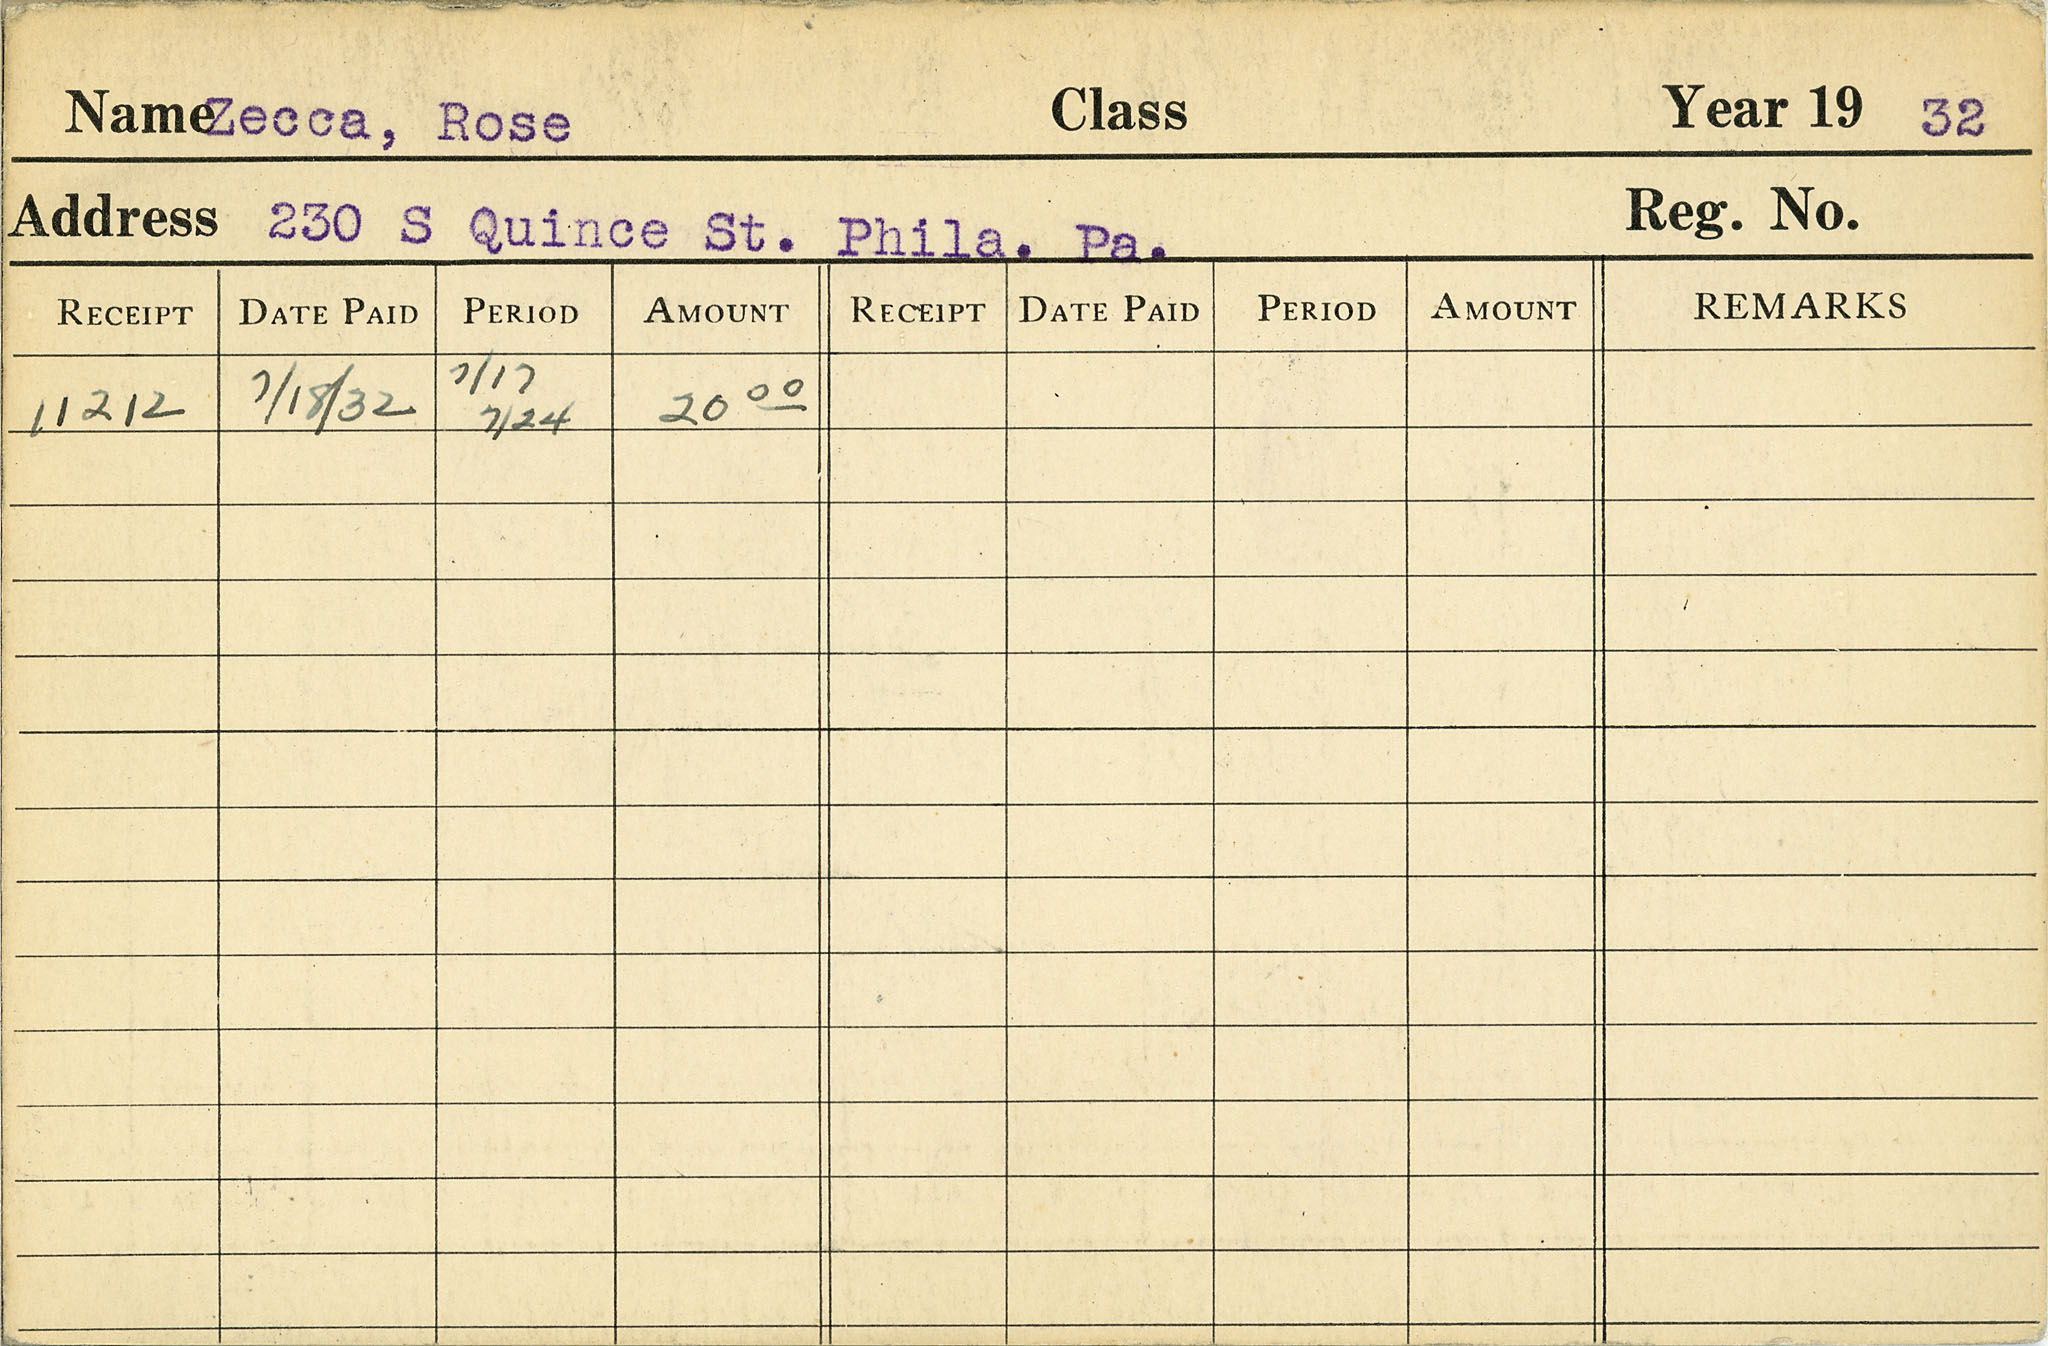 Name Zecca, Rose Class Year 19 32
Address 230 S Quince St. Phila. Pa. Reg. No.
RECEIPT DATE PAID PERIOD AMOUNT RECEIPT DATE PAID PERIOD AMOUNT REMARKS
11212 7/18/32 7/17 7/24 20 00